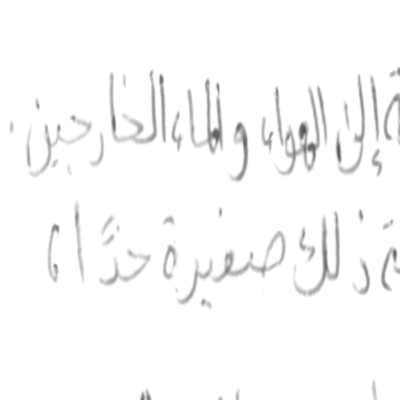 ة إلى الهواء والماء الخارجين.
ة ذلك صغيرة جدًا،